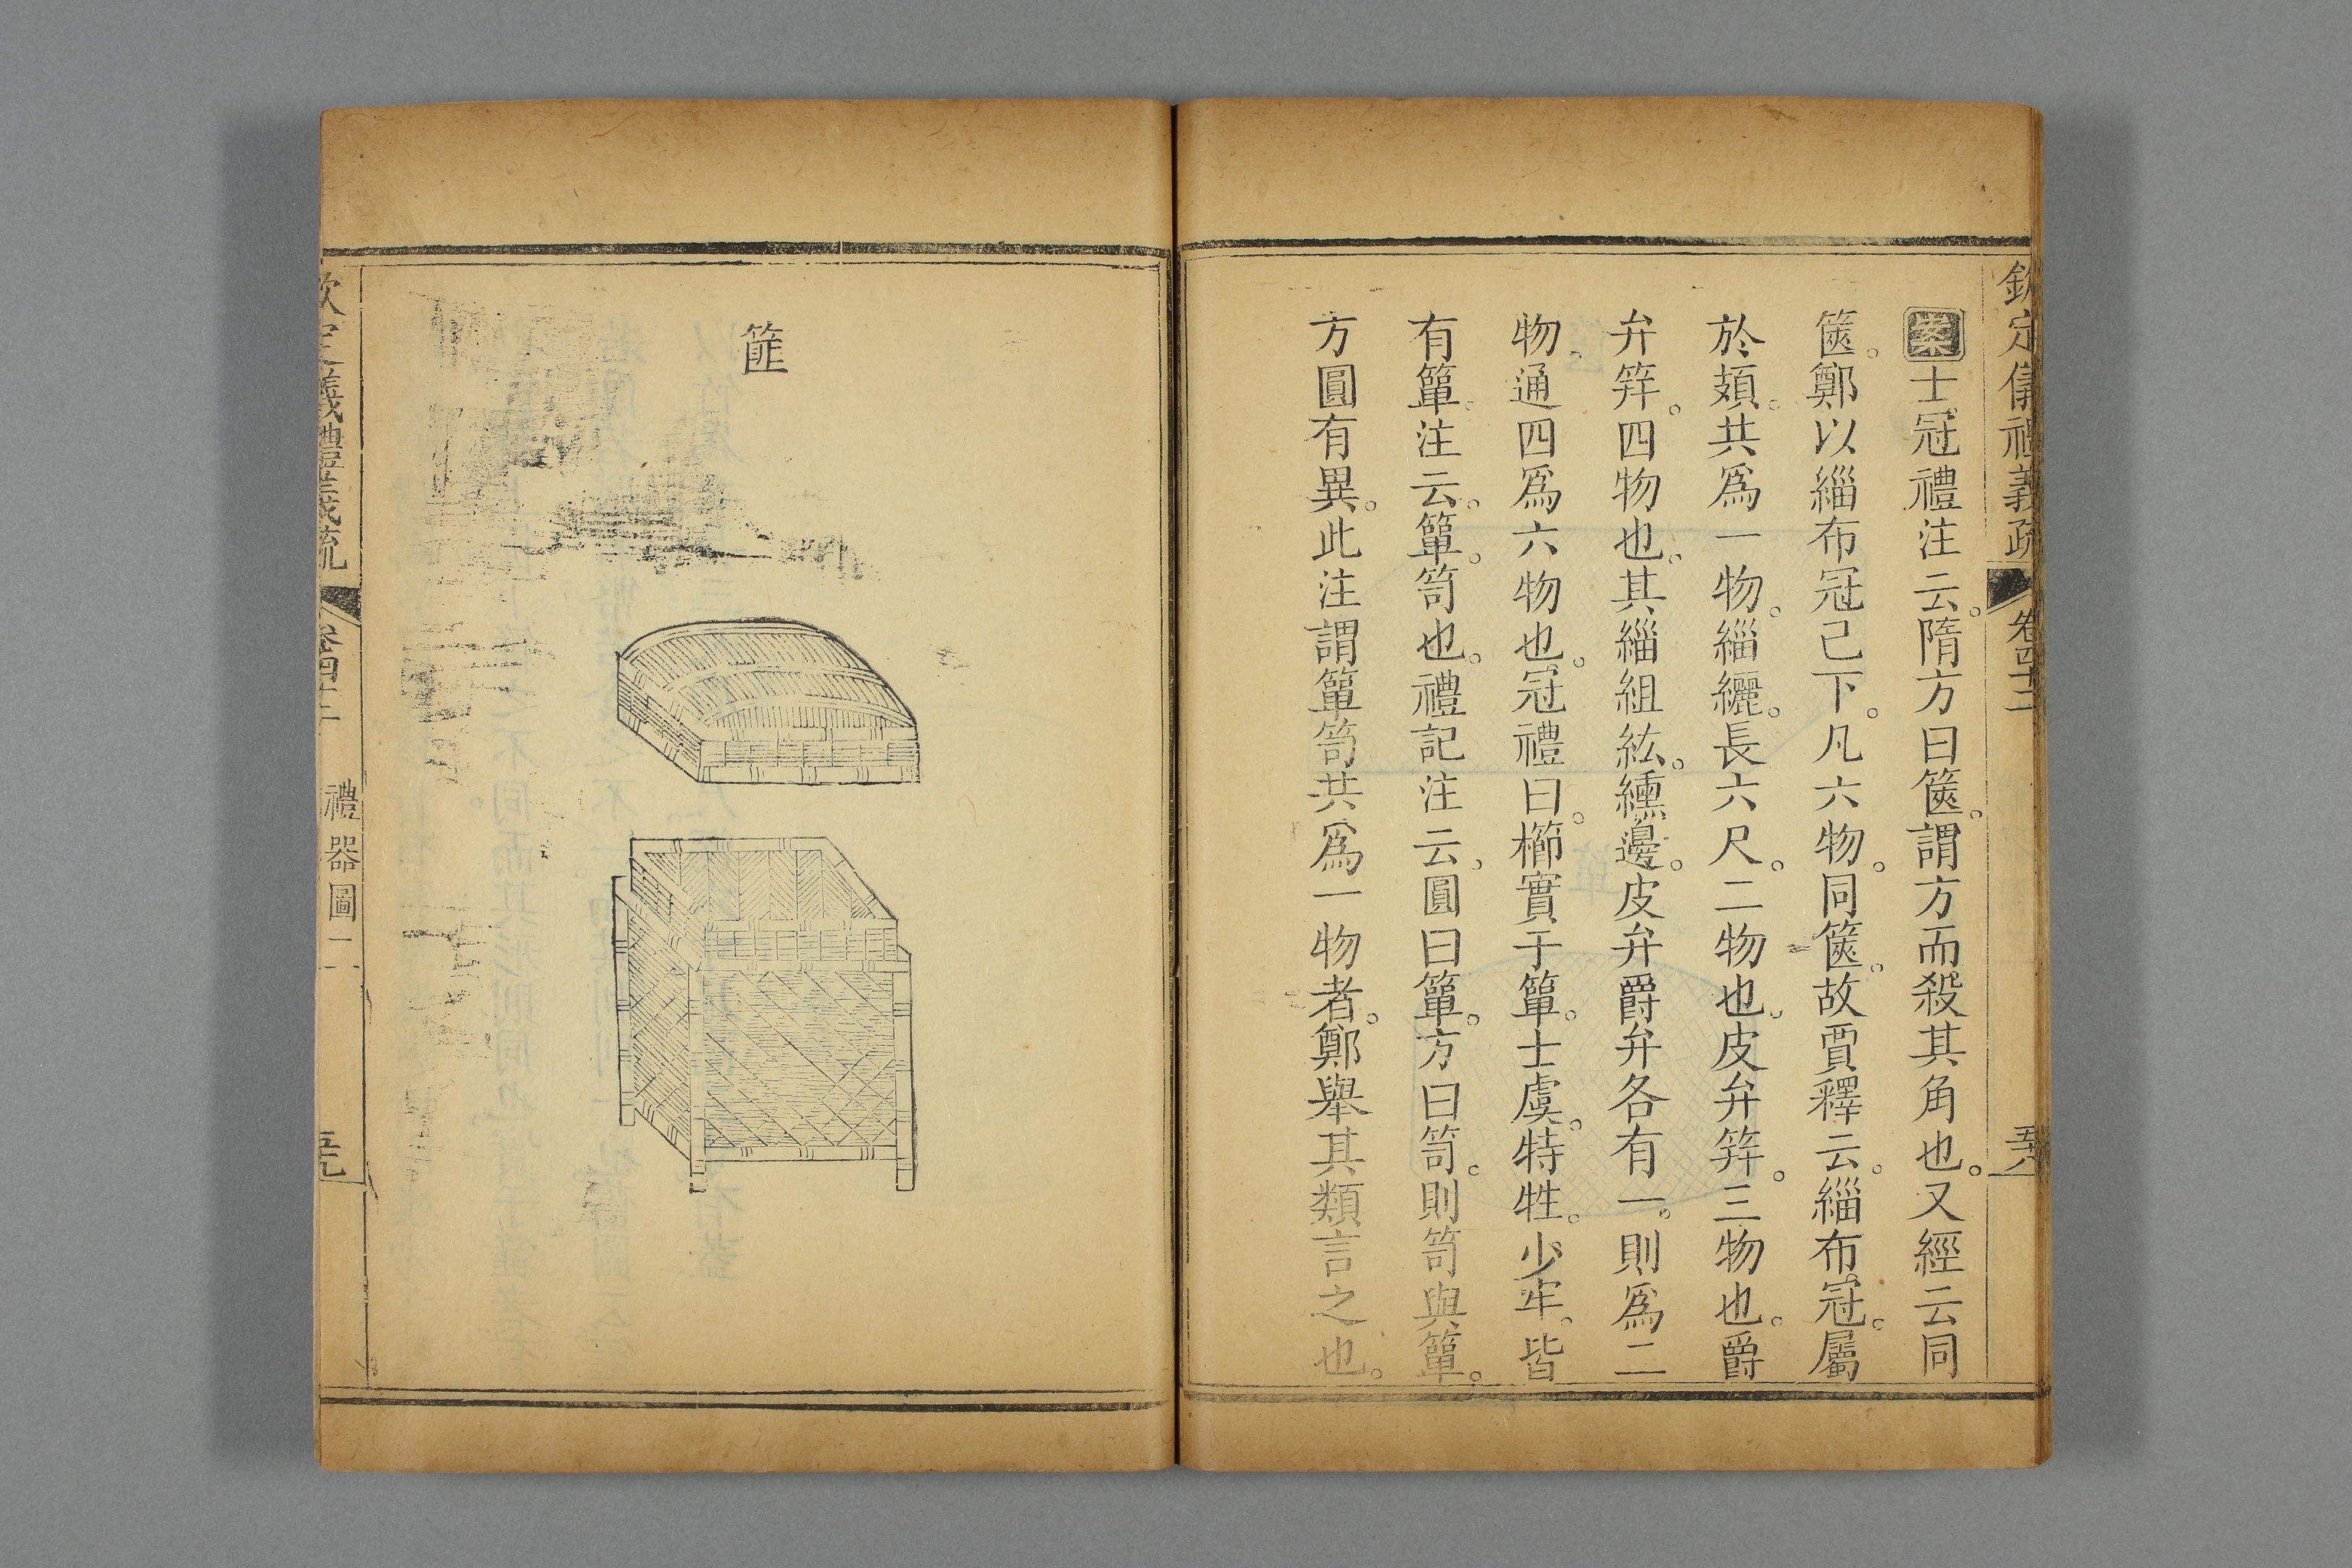 欽定儀禮義疏 卷四十三 五八
案士冠禮注云。隋方曰篋。謂方而殺其角也。又經云同
篋。鄭以緇布冠己下。凡六物。同篋。故賈釋云。緇布冠。屬
於頍。共爲一物。緇纚。長六尺。二物也。皮弁笄。三物也。爵
弁笄。四物也。其緇組紘。纁邊。皮弁爵弁各有一。則爲二
物、通四爲六物也。冠禮曰。櫛實于簞。士虞。特牲。少牢。皆
有簞。注云。簞。笥也。禮記注云、圓曰簞。方曰笥。則笥與簞。
方圓有異。此注謂簞笥共爲一物者。鄭舉其類言之也。
篚
欽定義禮義疏 禮器圖二